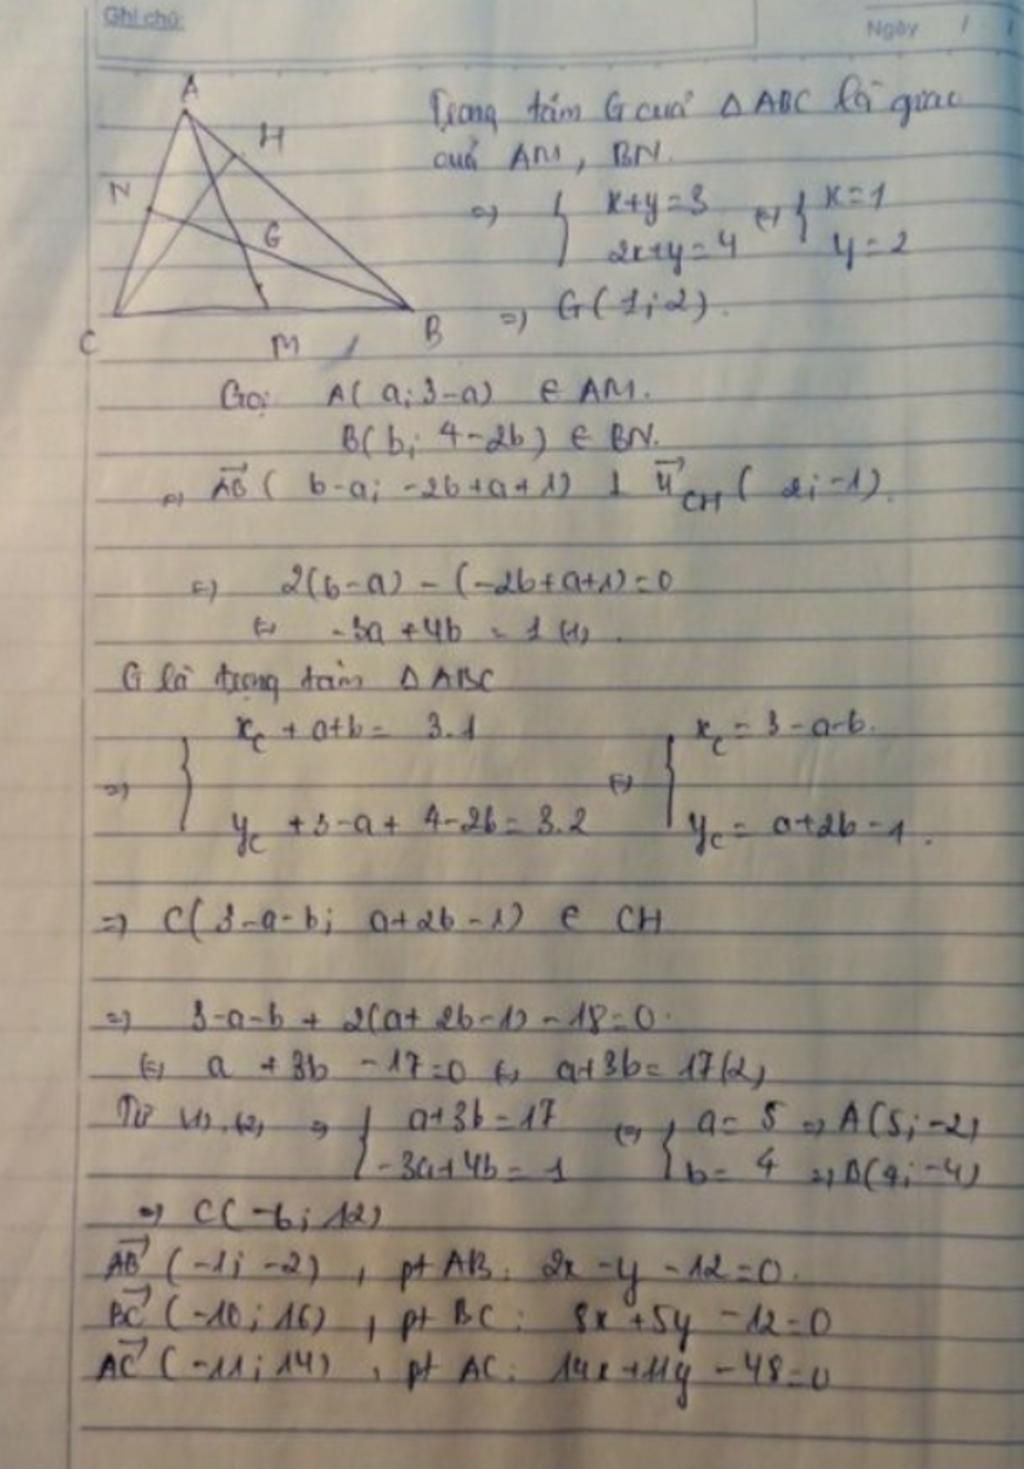 Ghi chú:
Ngày / /
A
H
N
G
C
M
B
Trọng tâm G của △ABC là giao
của AM, BN.
=> { x+y=3 <=> { x=1
2x+y=4 y=2
=> G(1;2).
Gọi A(a;3-a) ∈ AM.
B(b; 4-2b) ∈ BN.
=> AB→ ( b-a; -2b+a+1) ⊥ u→CH ( 2;-1)
=> 2(b-a) - (-2b+a+1)=0
<=> -3a+4b = 1 (1).
G là trọng tâm △ABC
=> { xC + a+b = 3.1 <=> { xC = 3-a-b.
yC +3-a+ 4-2b=3.2 yC = a+2b-1.
=> C(3-a-b; a+2b-1) ∈ CH
=> 3-a-b + 2(a+2b-1) -18=0.
<=> a +3b -17=0 <=> a+3b=17(2)
Từ (1),(2) => { a+3b=17 <=> { a= 5 => A(5;-2)
-3a+4b= 1 b= 4 => B(4;-4)
=> C(-6;12)
AB→ (-1; -2) , pt AB: 2x -y -12=0.
BC→ (-10;16) , pt BC: 8x+5y -12=0
AC→ (-11;14) , pt AC: 14x+11y -48=0